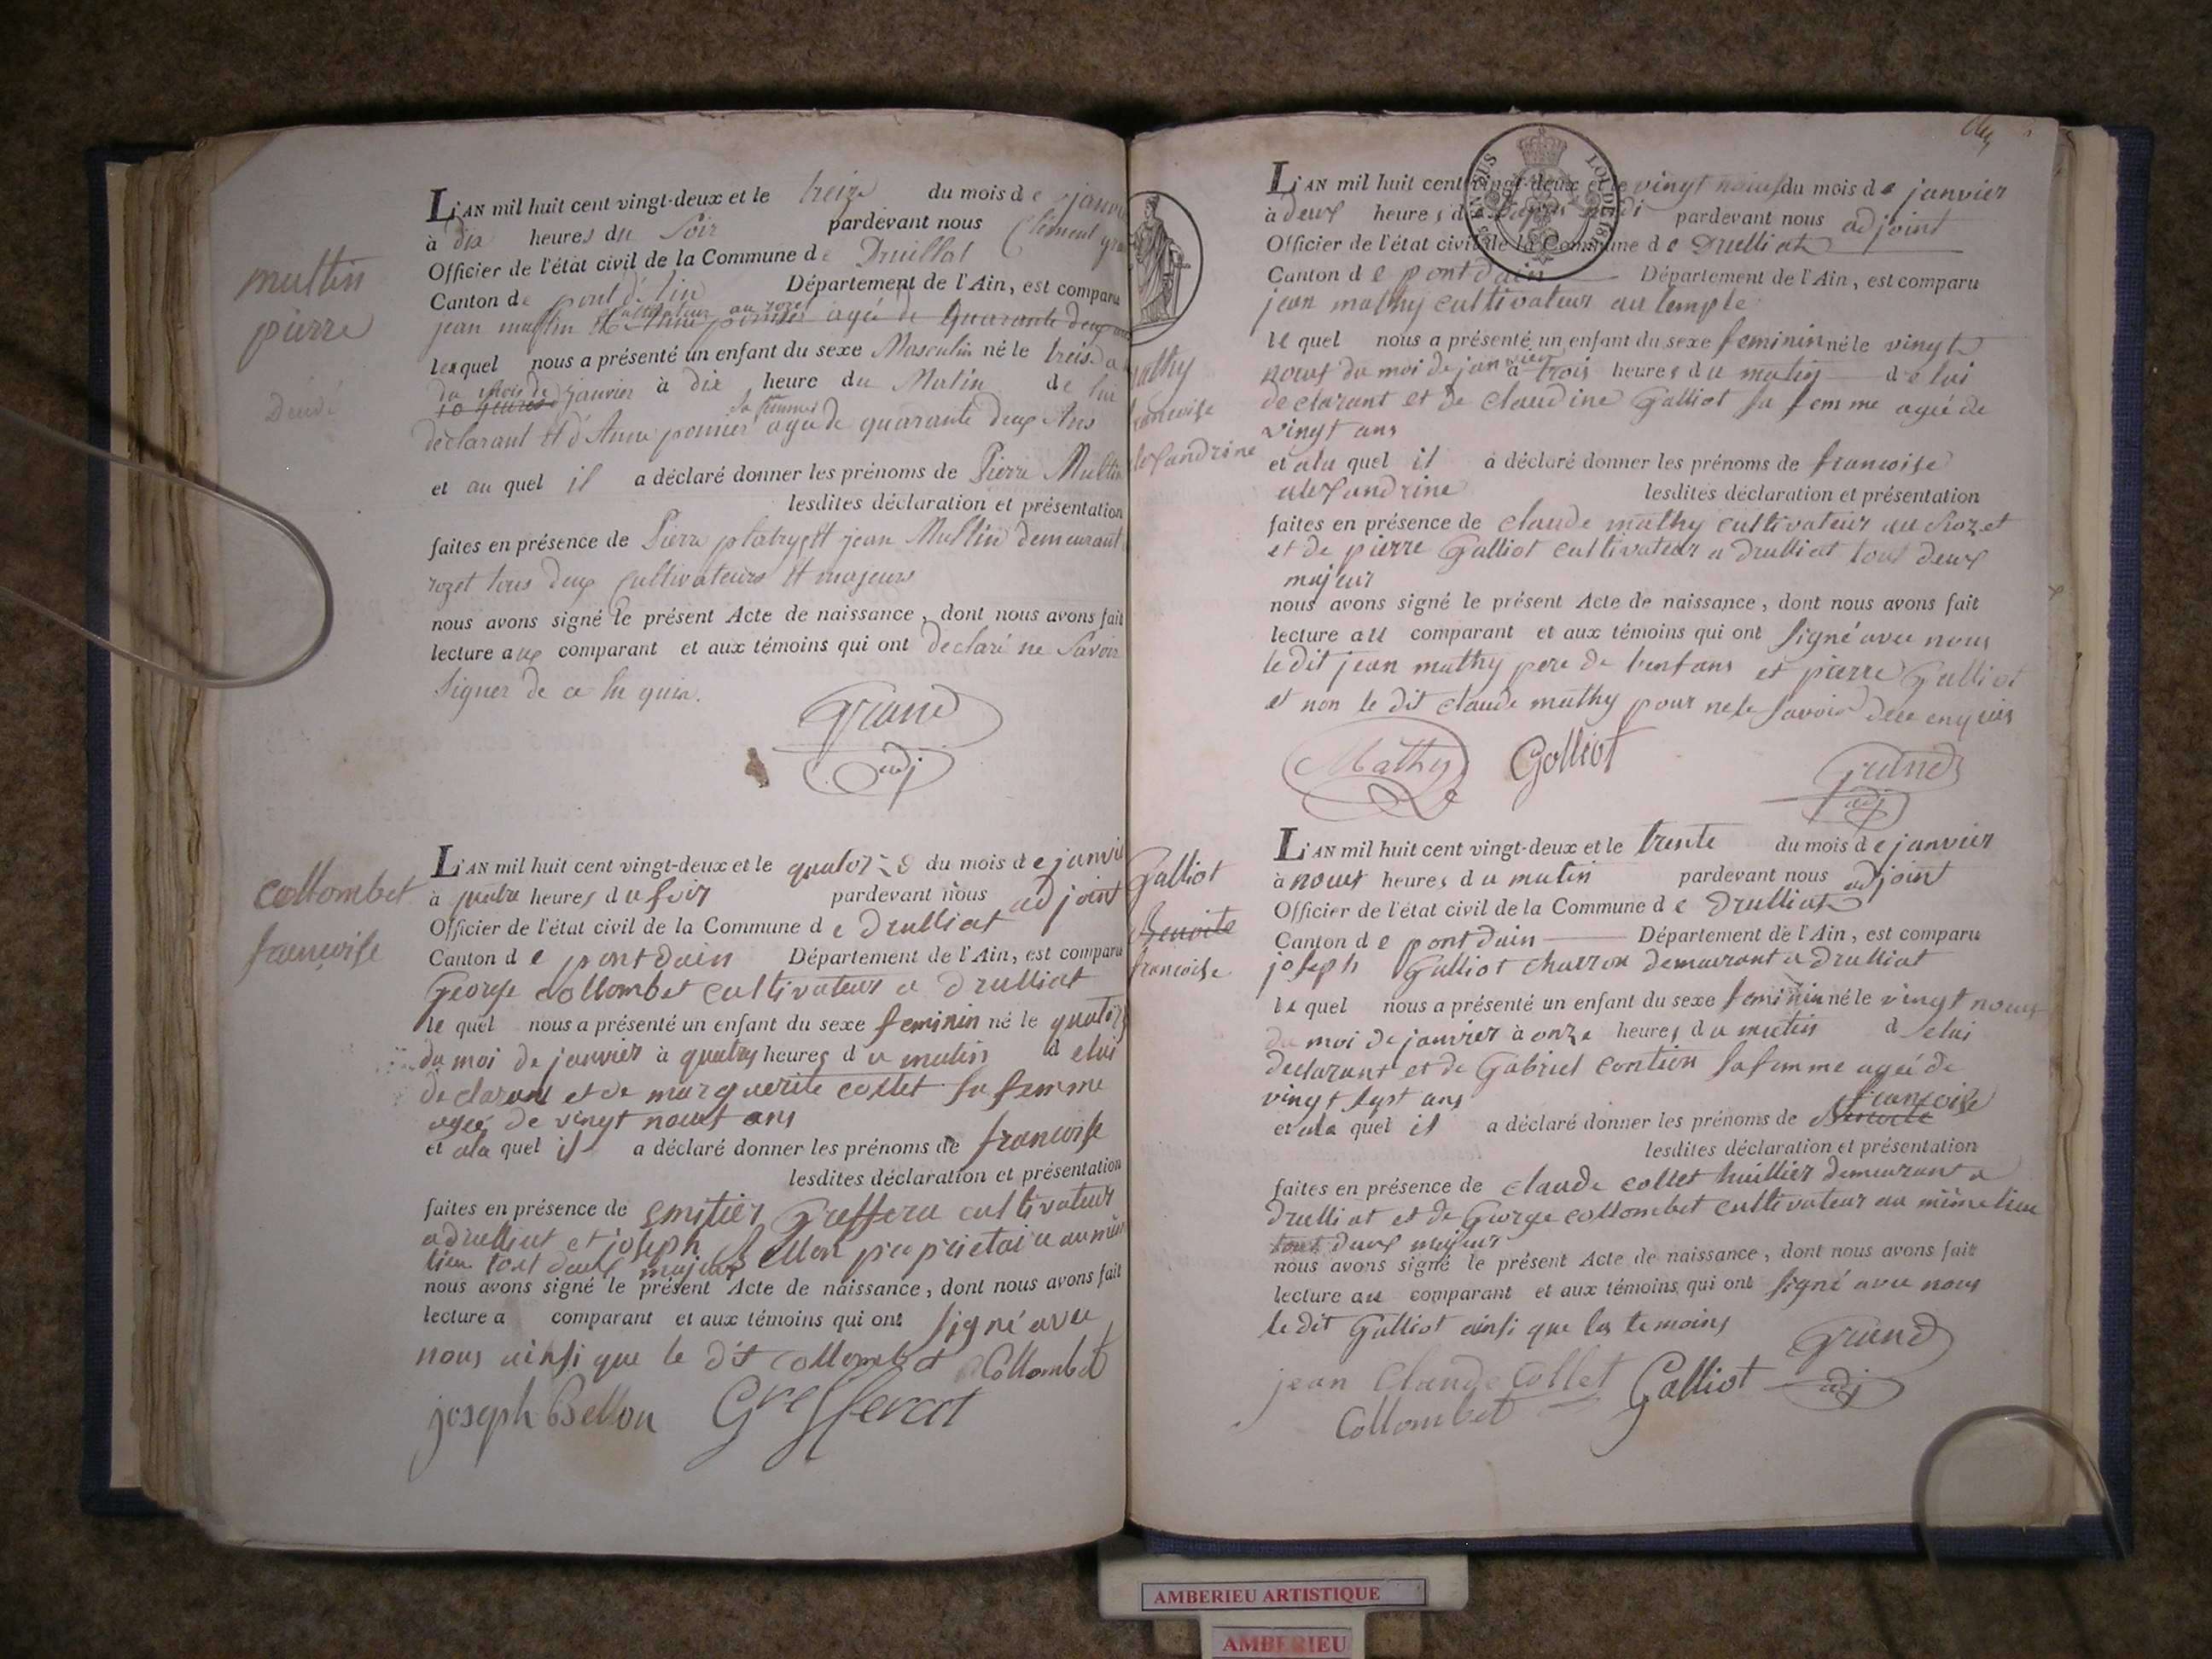 multin
pierre
Décédé
L'AN mil huit cent vingt-deux et le treize du mois de janvi
à dix heures du Soir pardevant nous Clément gra
Officier de l'état civil de la Commune de Druillat
Canton de pont d'ain Département de l'Ain, est comparu
cultivateur au rozet
jean multin et Anne ponnier agée de Quarante deux ans
lequel nous a présenté un enfant du sexe Masculin né le treise
du mois de
10 heures janvier à dix heure du Matin de lui
sa femme
déclarant et d'Anne ponnier agée de quarante deux Ans
et au quel il a déclaré donner les prénoms de Pierre Multin
lesdites déclaration et présentation
faites en présence de Pierre et jean Multin demeurant
rozet tous deux Cultivateurs et majeurs
nous avons signé le présent Acte de naissance, dont nous avons fait
lecture aux comparant et aux témoins qui ont déclaré ne Savoir
Signer de ce
Grand
adj
collombet
francoise
L'AN mil huit cent vingt-deux et le quatorze du mois de janvi
à quatre heures du soir pardevant nous adjoint
Officier de l'état civil de la Commune de Drulliat
Canton de pont dain Département de l'Ain, est comparu
George collombet cultivateur a drulliat
le quel nous a présenté un enfant du sexe feminin né le quatorz
du moi de janvier à quatry heures du matin de lui
declarant et de marguerite collet sa femme
agée de vingt nouf ans
et ala quel il a déclaré donner les prénoms de francoise
lesdites déclaration et présentation
faites en présence de cultivateur
a drulliat et joseph Bellon propriétaire au mêm
lieu tout deux majeur
nous avons signé le présent Acte de naissance, dont nous avons fait
lecture a comparant et aux témoins qui ont signé avec
nous ainsi que le dit collombet Collombet
joseph Bellon Greffercat
L'AN mil huit cent vingt-deux et le vingt nouf du mois de janvier
à deux heures d apres midi pardevant nous adjoint
Officier de l'état civil de la Commune de Drulliat
Canton de pont dain Département de l'Ain, est comparu
jean mathy cultivateur au temple
mathy
francoise
alexandrine
le quel nous a présenté un enfant du sexe feminin né le vingt
nouf du moi de janvier à trois heures du matin de lui
declarant et de claudine Galliot sa femme agée de
vingt ans
et ala quel il a déclaré donner les prénoms de francoise
alexandrine lesdites déclaration et présentation
faites en présence de claude mathy cultivateur au Rozet
et de pierre Galliot cultivateur a drulliat tout deux
majeur
nous avons signé le présent Acte de naissance, dont nous avons fait
lecture au comparant et aux témoins qui ont signé avec nous
le dit jean mathy pere de l'enfans et pierre Galliot
et non le dit claude mathy pour ne le savoir de ce enquis
Mathy Galliot Grand
adj
Galliot
Benoite
francoise
L'AN mil huit cent vingt-deux et le trente du mois de janvier
à nouf heures du matin pardevant nous adjoint
Officier de l'état civil de la Commune de Drulliat
Canton de pont dain Département de l'Ain, est comparu
joseph Galliot charron demeurant a drulliat
le quel nous a présenté un enfant du sexe feminin né le vingt nouf
du moi de janvier à onze heures du matin de lui
declarant et de Gabriel contion sa femme agée de
vingt sept ans
francoise
et ala quel il a déclaré donner les prénoms de Benoite
lesdites déclaration et présentation
faites en présence de claude collet huillier demeurant a
drulliat et de George collombet cultivateur au même lieu
tout deux majeur
nous avons signé le présent Acte de naissance, dont nous avons fait
lecture au comparant et aux témoins qui ont signé avec nous
le dit Galliot ainsi que les temoins
Grand
jean Claude Collet Galliot adj
Collombet
AMBERIEU ARTISTIQUE
AMBERIEU